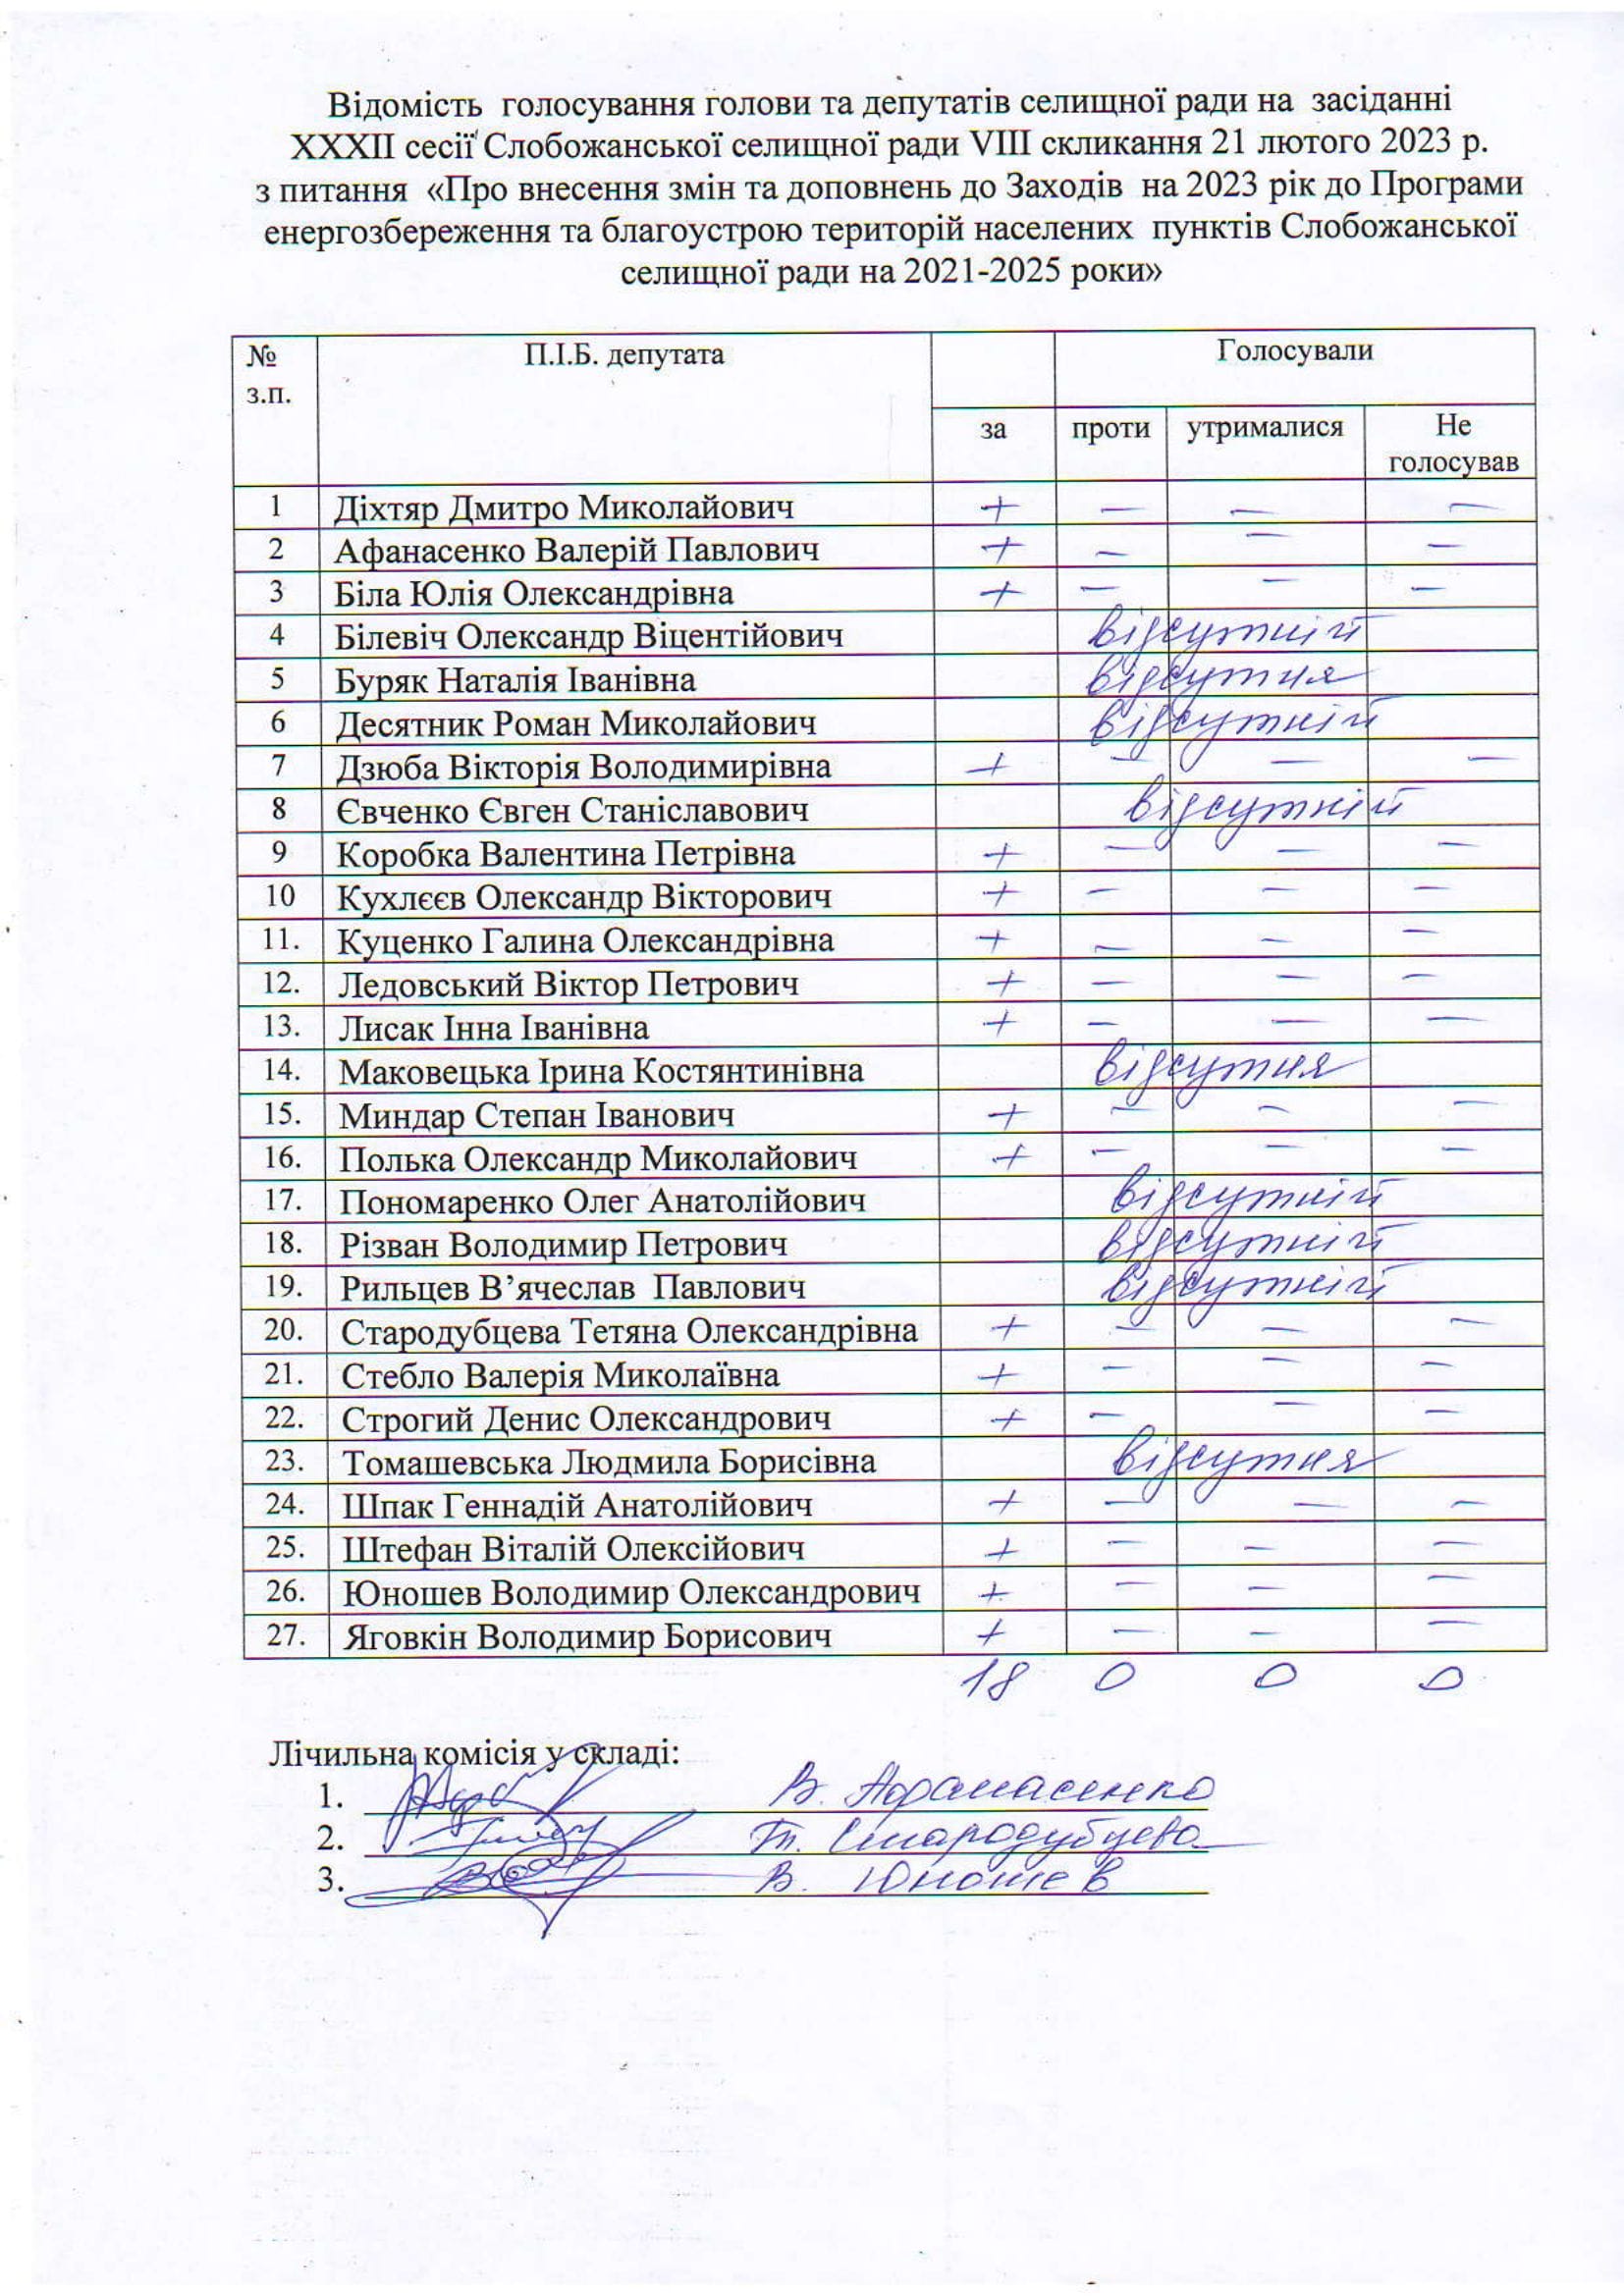 Відомість голосування голови та депутатів селищної ради на засіданні
XXXII сесії Слобожанської селищної ради VIII скликання 21 лютого 2023 р.
з питання «Про внесення змін та доповнень до Заходів на 2023 рік до Програми
енергозбереження та благоустрою територій населених пунктів Слобожанської
селищної ради на 2021-2025 роки»
№ з.п. П.І.Б. депутата Голосували
за проти утрималися Не голосував
1 Діхтяр Дмитро Миколайович + — — —
2 Афанасенко Валерій Павлович + — — —
3 Біла Юлія Олександрівна + — — —
4 Білевіч Олександр Віцентійович відсутній
5 Буряк Наталія Іванівна відсутня
6 Десятник Роман Миколайович відсутній
7 Дзюба Вікторія Володимирівна + — — —
8 Євченко Євген Станіславович відсутній
9 Коробка Валентина Петрівна + — — —
10 Кухлєєв Олександр Вікторович + — — —
11. Куценко Галина Олександрівна + — — —
12. Ледовський Віктор Петрович + — — —
13. Лисак Інна Іванівна + — — —
14. Маковецька Ірина Костянтинівна відсутня
15. Миндар Степан Іванович + — — —
16. Полька Олександр Миколайович + — — —
17. Пономаренко Олег Анатолійович відсутній
18. Різван Володимир Петрович відсутній
19. Рильцев В’ячеслав Павлович відсутній
20. Стародубцева Тетяна Олександрівна + — — —
21. Стебло Валерія Миколаївна + — — —
22. Строгий Денис Олександрович + — — —
23. Томашевська Людмила Борисівна відсутня
24. Шпак Геннадій Анатолійович + — — —
25. Штефан Віталій Олексійович + — — —
26. Юношев Володимир Олександрович + — — —
27. Яговкін Володимир Борисович + — — —
18 0 0 0
Лічильна комісія у складі:
1. В. Афанасенко
2. Т. Стародубцева
3. В. Юношев